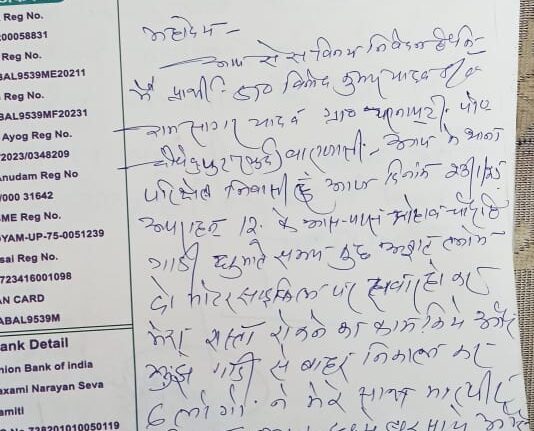 Reg No.
:00058831
Reg No.
BAL9539ME20211
Reg No.
BAL9539MF20231
Ayog Reg No.
2023/0348209
nudam Reg No
/000 31642
ME Reg No.
YAM-UP-75-0051239
sai Reg No.
723416001098
N CARD
ABAL9539M
ank Detail
nion Bank of india
axami Narayan Seva
amiti
738201010050119
महोदय -
आप से सविनय निवेदन है कि
मैं प्रार्थी डा० विनोद कुमार यादव S/o
राम सागर यादव ग्राम पोस्ट
वाराणसी आप के थाना
परिक्षेत्र निवासी हूँ आज दिनांक
अपराह्न 12. के आस-पास
गाड़ी घुमाते समय कुछ अज्ञात लोग
दो मोटर साइकिल पर सवार होकर
मेरा रास्ता रोकने का काम किये और
मुझे गाड़ी से बाहर निकाल कर
6 लोगों ने मेरे साथ मारपीट